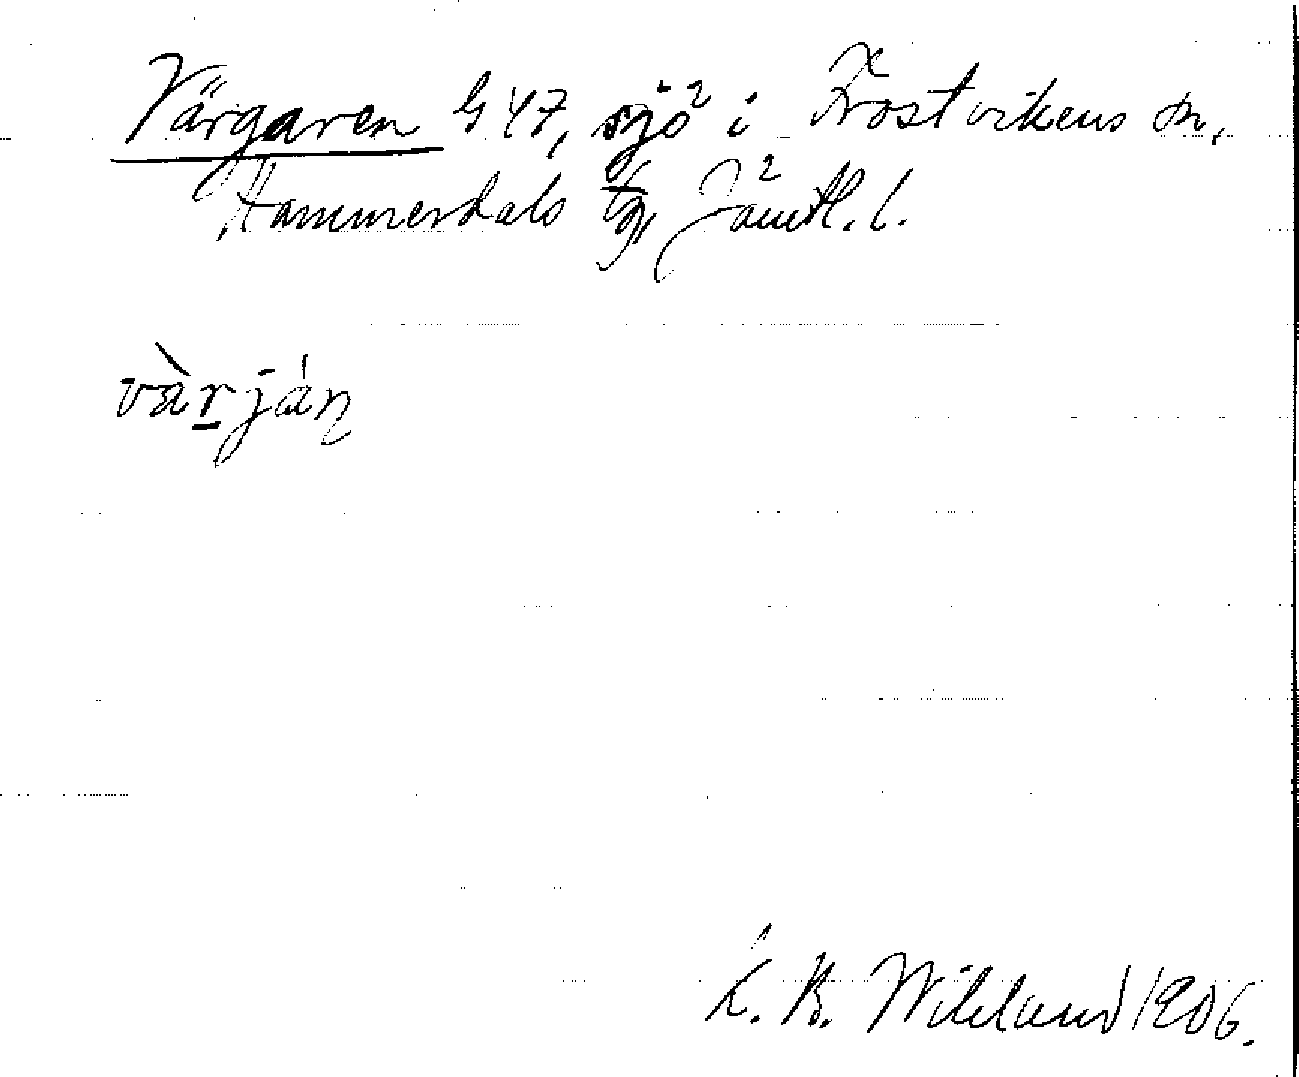 Värgaren G 47, sjö i Frostvikens sn,
Hammerdals tg, Jämtl. l.
vàrján
K. B. Wiklund 1906.